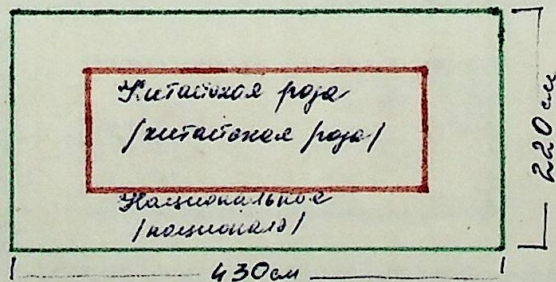 Китайская роза
/китайская роза/
Национальное
/национале/
220 см
430 см